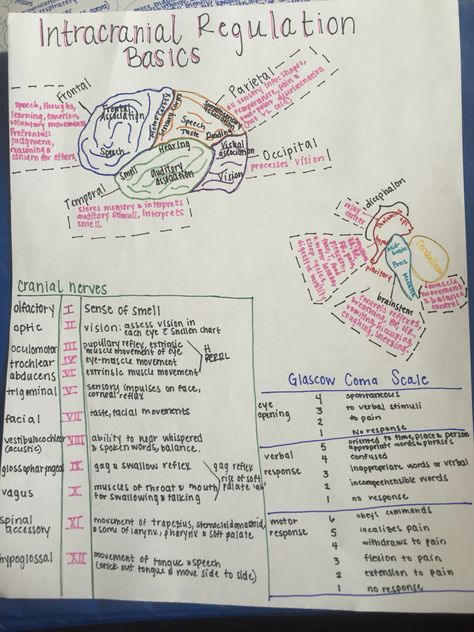 Intracranial Regulation
Basics
Frontal
speech, thoughts,
learning, emotion,
voluntary movements
Prefrontal:
judgment,
reasoning &
concern for others.
Frontal
Association
Speech
Speech
Taste
Reading
Hearing
Smell
Auditory
association
Visual
association
Vision
Parietal
sensory info: shapes,
temperature, pain &
two-point discrimination
(hot vs. cold)
Occipital
processes vision
Temporal
stores memory & interprets
auditory stimuli, interprets
smell.
diecephalon
relay
center
Thalamus
pituitary
mid
brain
Pons
Cerebellum
muscle
movement &
balance
control
brainstem
controls reflexes,
vomiting, hiccuping,
coughing, sneezing,
cranial nerves
olfactory I sense of smell
optic II vision: assess vision in
each eye c̄ snellen chart
oculomotor III pupillary reflex, extrinsic
muscle movement of eye
trochlear IV eye-muscle movement
abducens VI extrinsic muscle movement
PERRL
trigminal V sensory impulses on face,
corneal reflex
facial VII taste, facial movements
vestibulocochlear VIII ability to hear whispered
(acustic) & spoken words, balance.
glossopharyngeal IX gag & swallow reflex
vagus X muscles of throat & mouth
for swallowing & talking
gag reflex
rise of soft
palate "ah"
spinal
accessory XI movement of trapezius, sternocleidomastoid
& some of larynx, pharynx & soft palate
hypoglossal XII movement of tongue & speech
(stick out tongue & move side to side)
Glascow Coma Scale
eye
opening
4 spontaneous
3 to verbal stimuli
2 to pain
1 No response
verbal
response
5 oriented to time, place & person
appropriate words & phrases
4 confused
3 inappropriate words or verbal
2 incomprehensible words
1 no response
motor
response
6 obeys commands
5 localizes pain
4 withdraws to pain
3 flexion to pain
2 extension to pain
1 no response